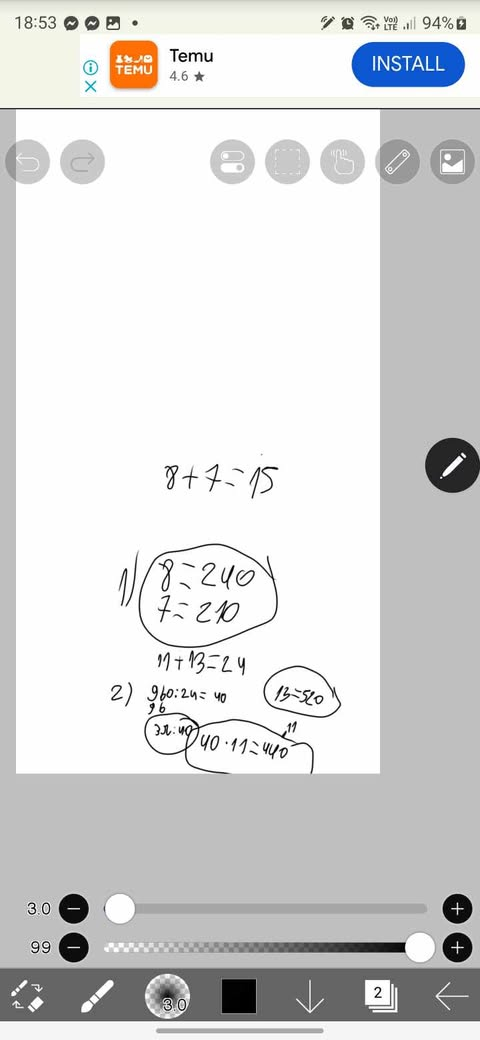 18:53
Vo))
LTE
94%
Temu
4.6 ★
INSTALL
TEMU
8+7=15
1)
8=240
7=210
11+13=24
2) 960:24=40
96
13=520
11
40·11=440
3.0
99
3.0
2